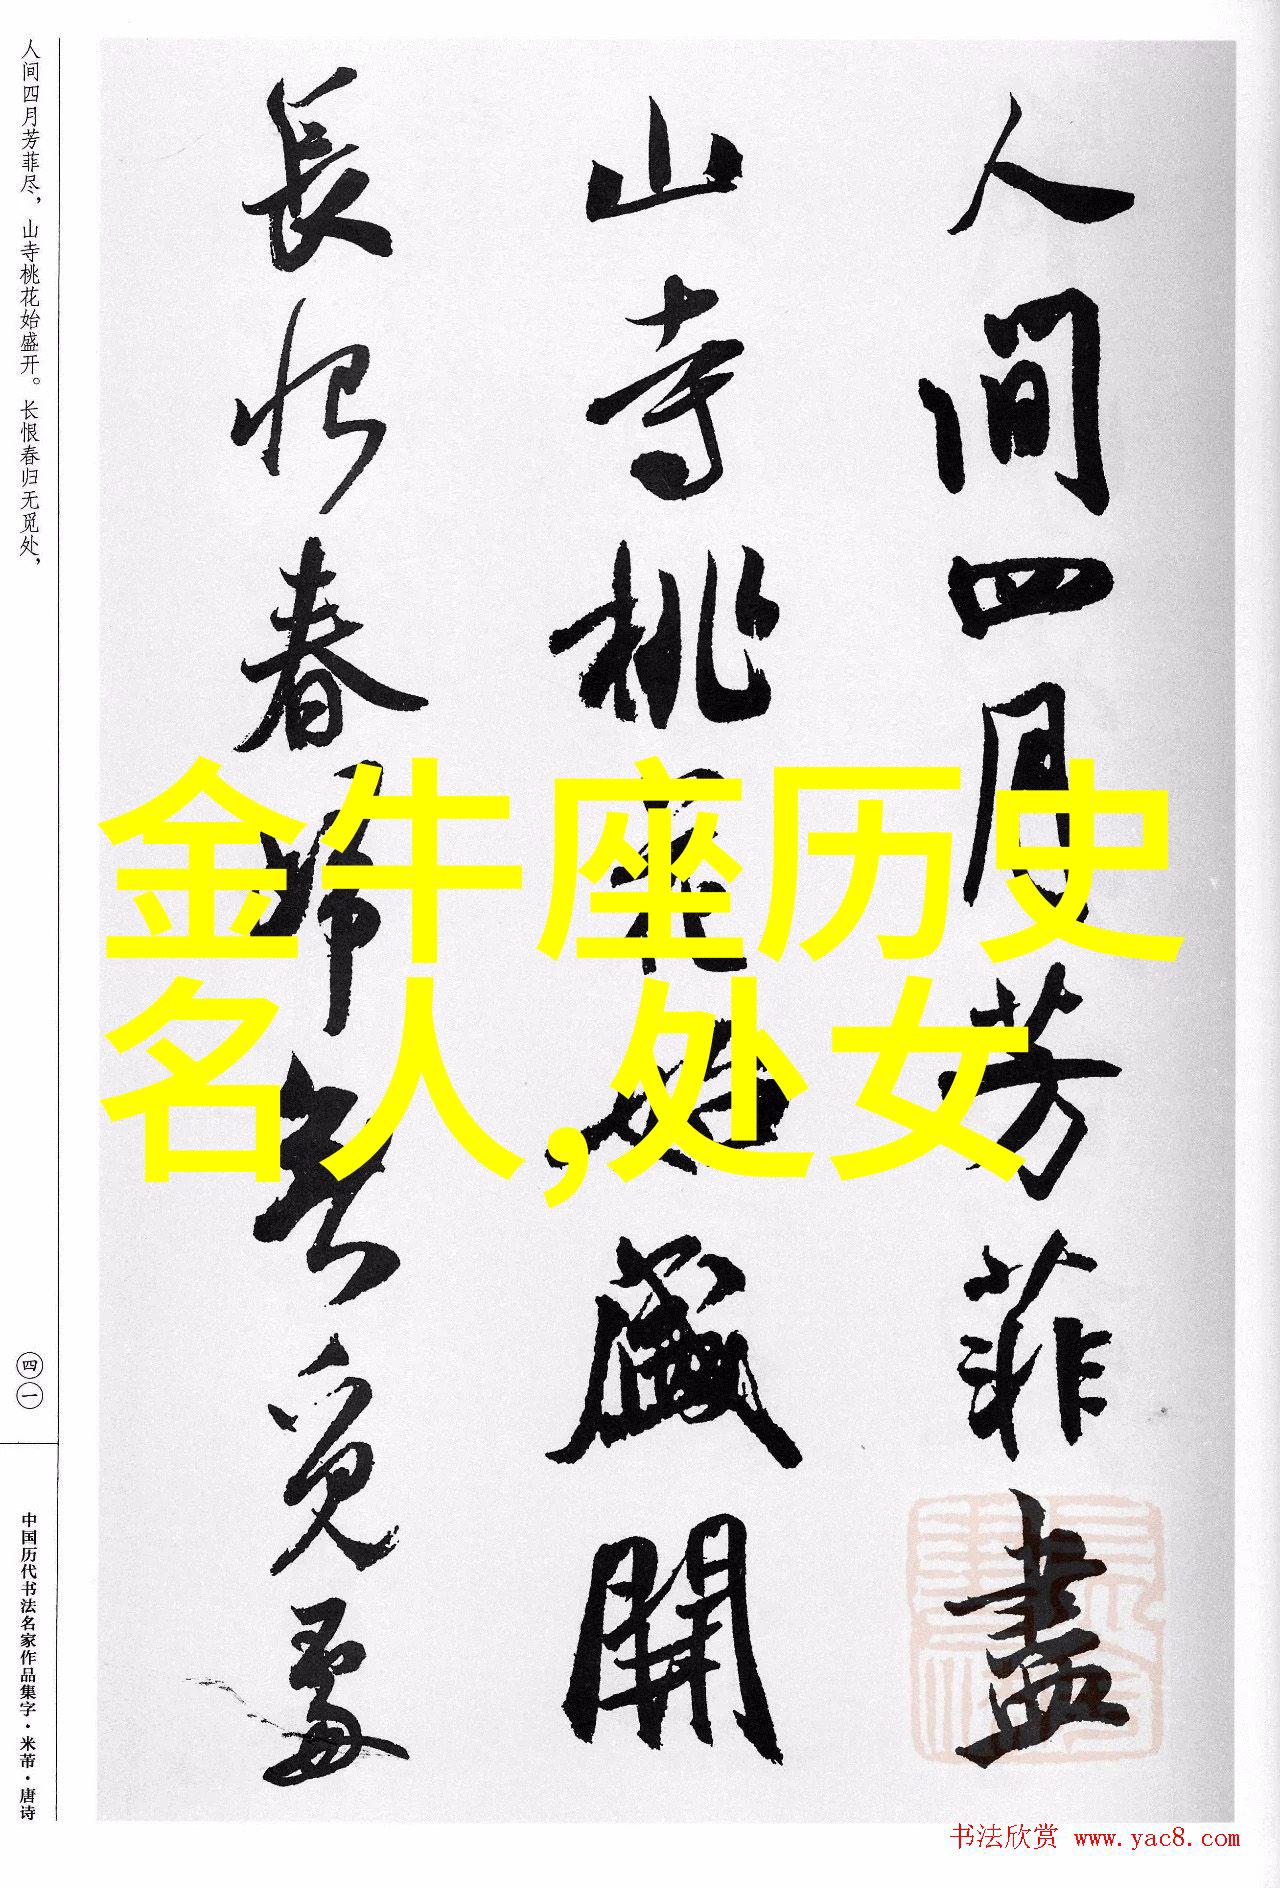 人间四月芳菲尽，山寺桃花始盛开。长恨春归无觅处，
人間四月芳菲盡
山寺桃花始盛開
長恨春歸無覓處
金牛座历史
名人,处女
四一
中国历代书法名家作品集字·米芾·唐诗
书法欣赏 www.yac8.com